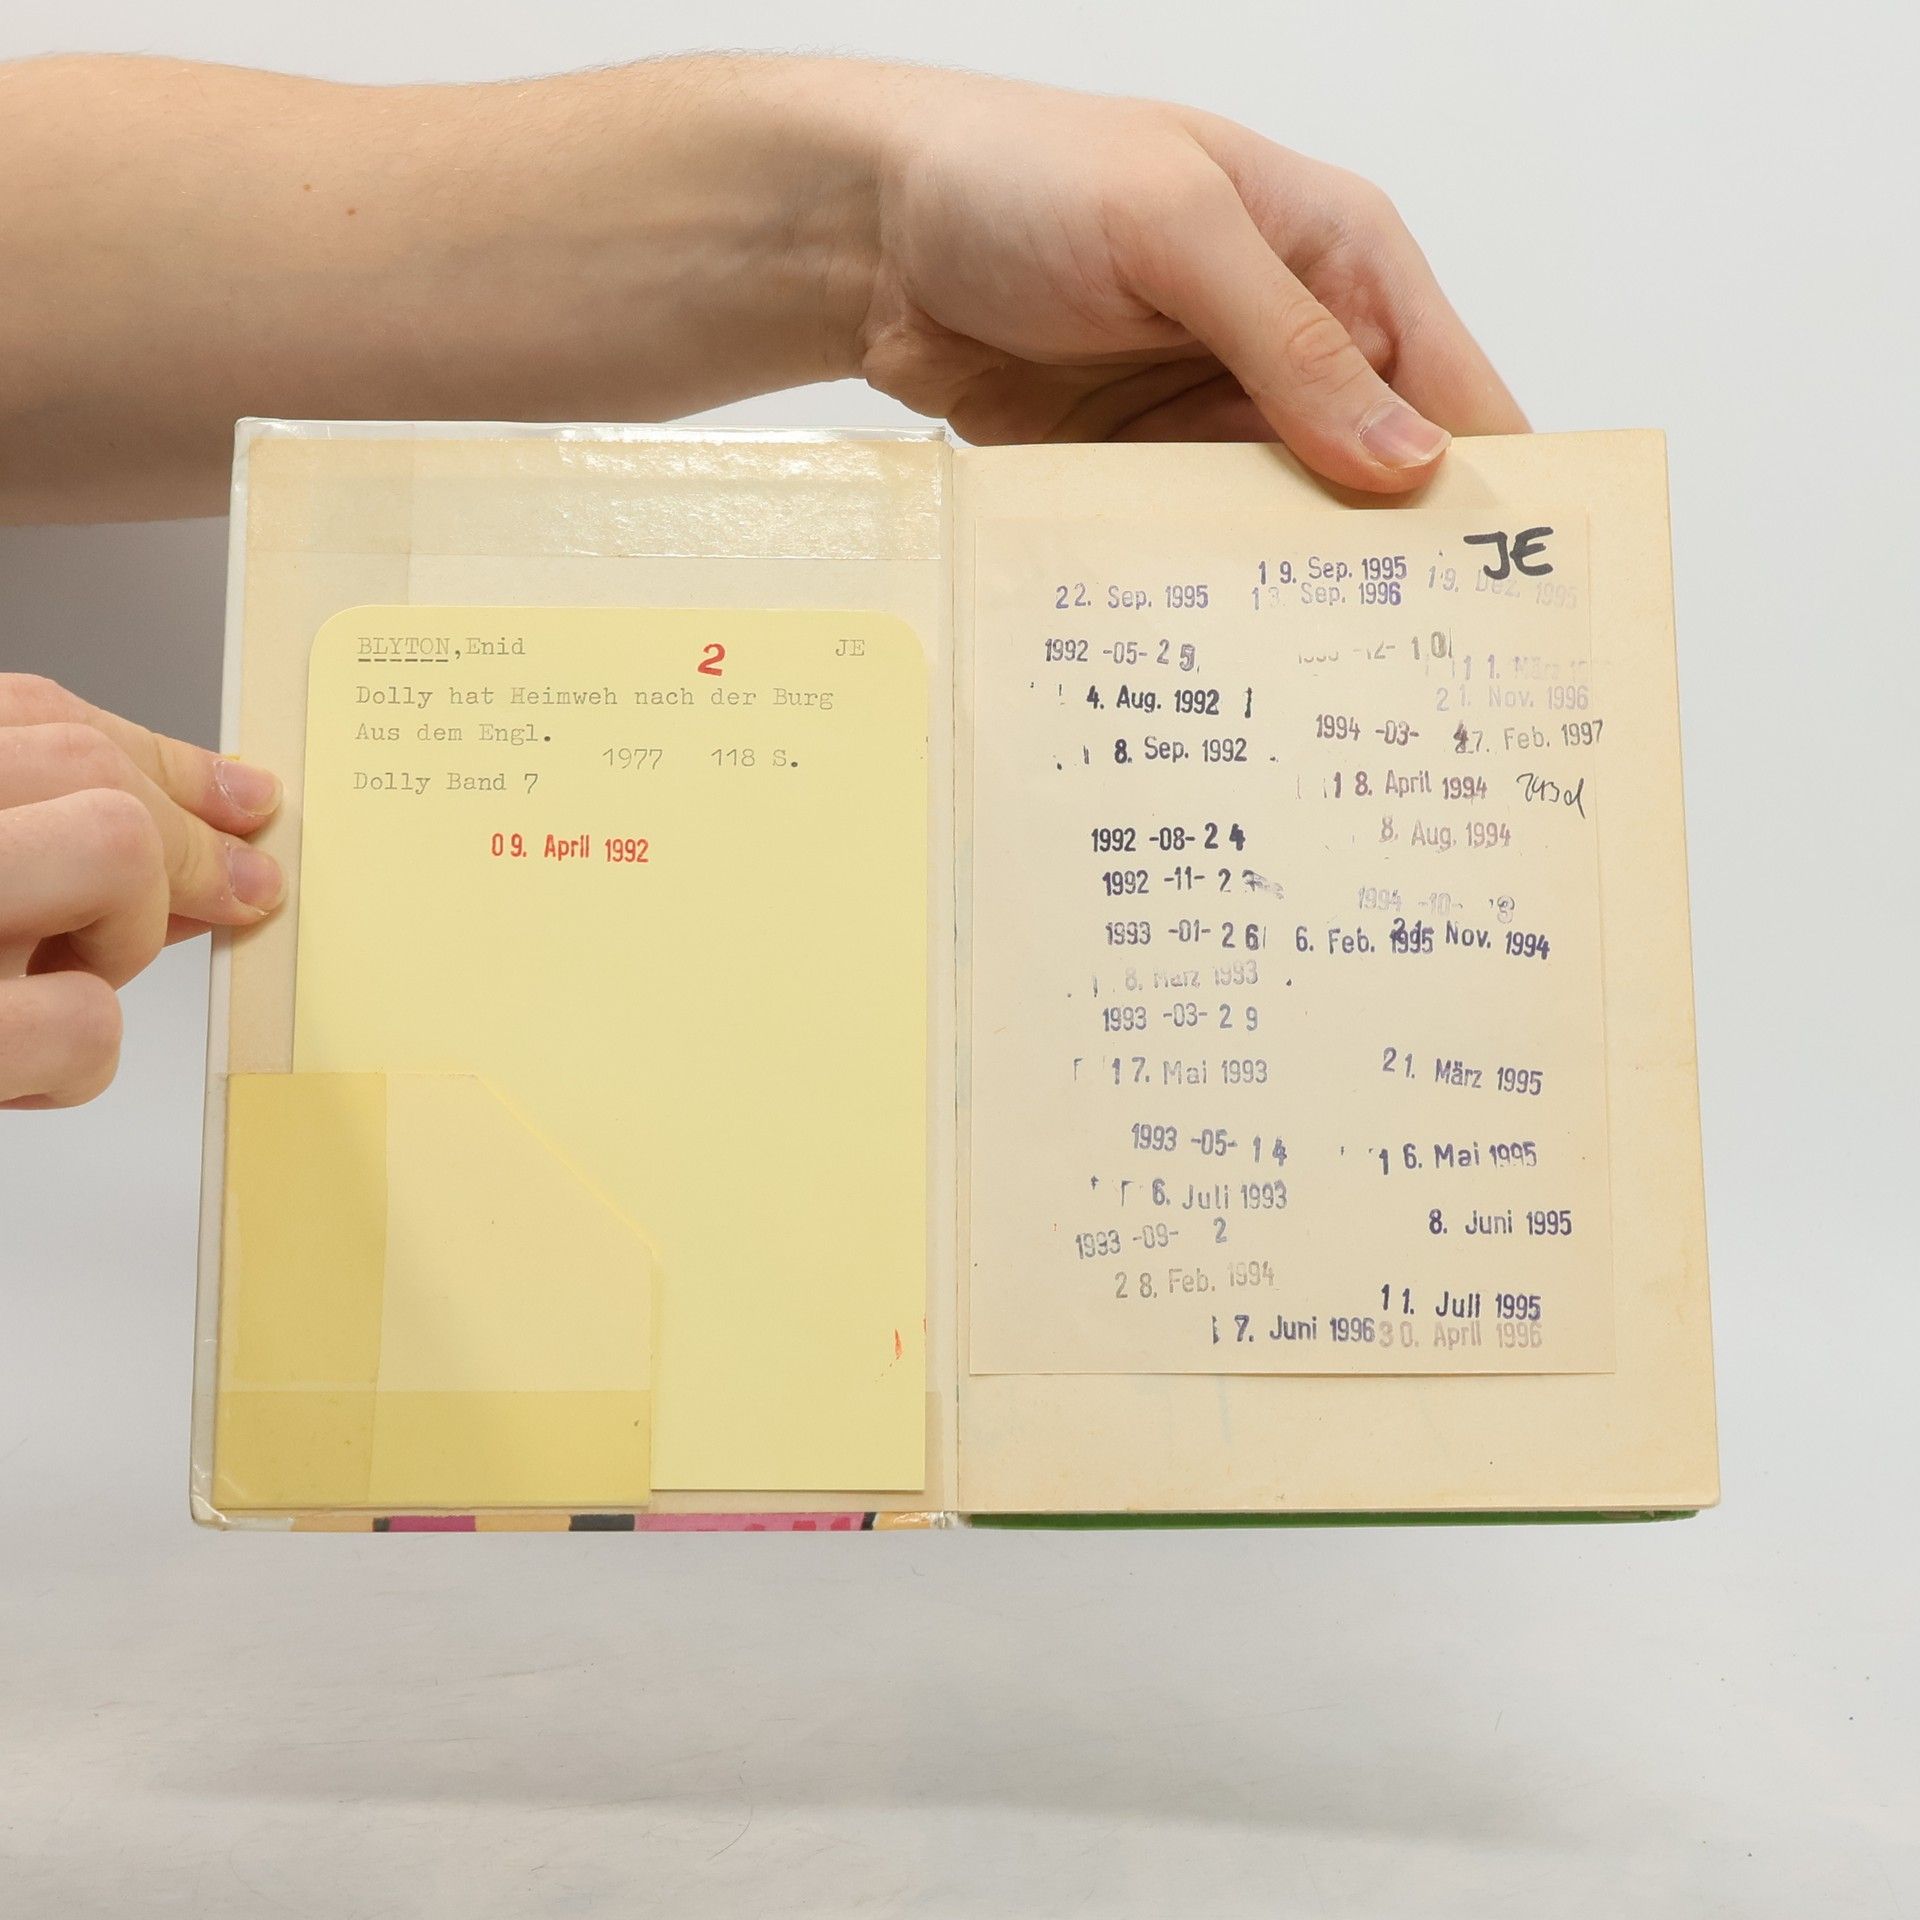 BLYTON,Enid 2 JE
Dolly hat Heimweh nach der Burg
Aus dem Engl.
1977 118 S.
Dolly Band 7
09. April 1992
JE
19. Sep. 1995
19. Dez. 1995
22. Sep. 1995
Sep. 1996
1992 -05- 25
11. März
4. Aug. 1992
21. Nov. 1996
8. Sep. 1992
1994 -03-
27. Feb. 1997
18. April 1994
1992 -08- 24
8. Aug. 1994
1992 -11- 2
1994 -10-
1993 -01- 26
6. Feb. 1995
21. Nov. 1994
8. März 1993
1993 -03- 29
17. Mai 1993
21. März 1995
1993 -05- 14
16. Mai 1995
6. Juli 1993
8. Juni 1995
1993 -09- 2
28. Feb. 1994
11. Juli 1995
17. Juni 1996
30. April 1996